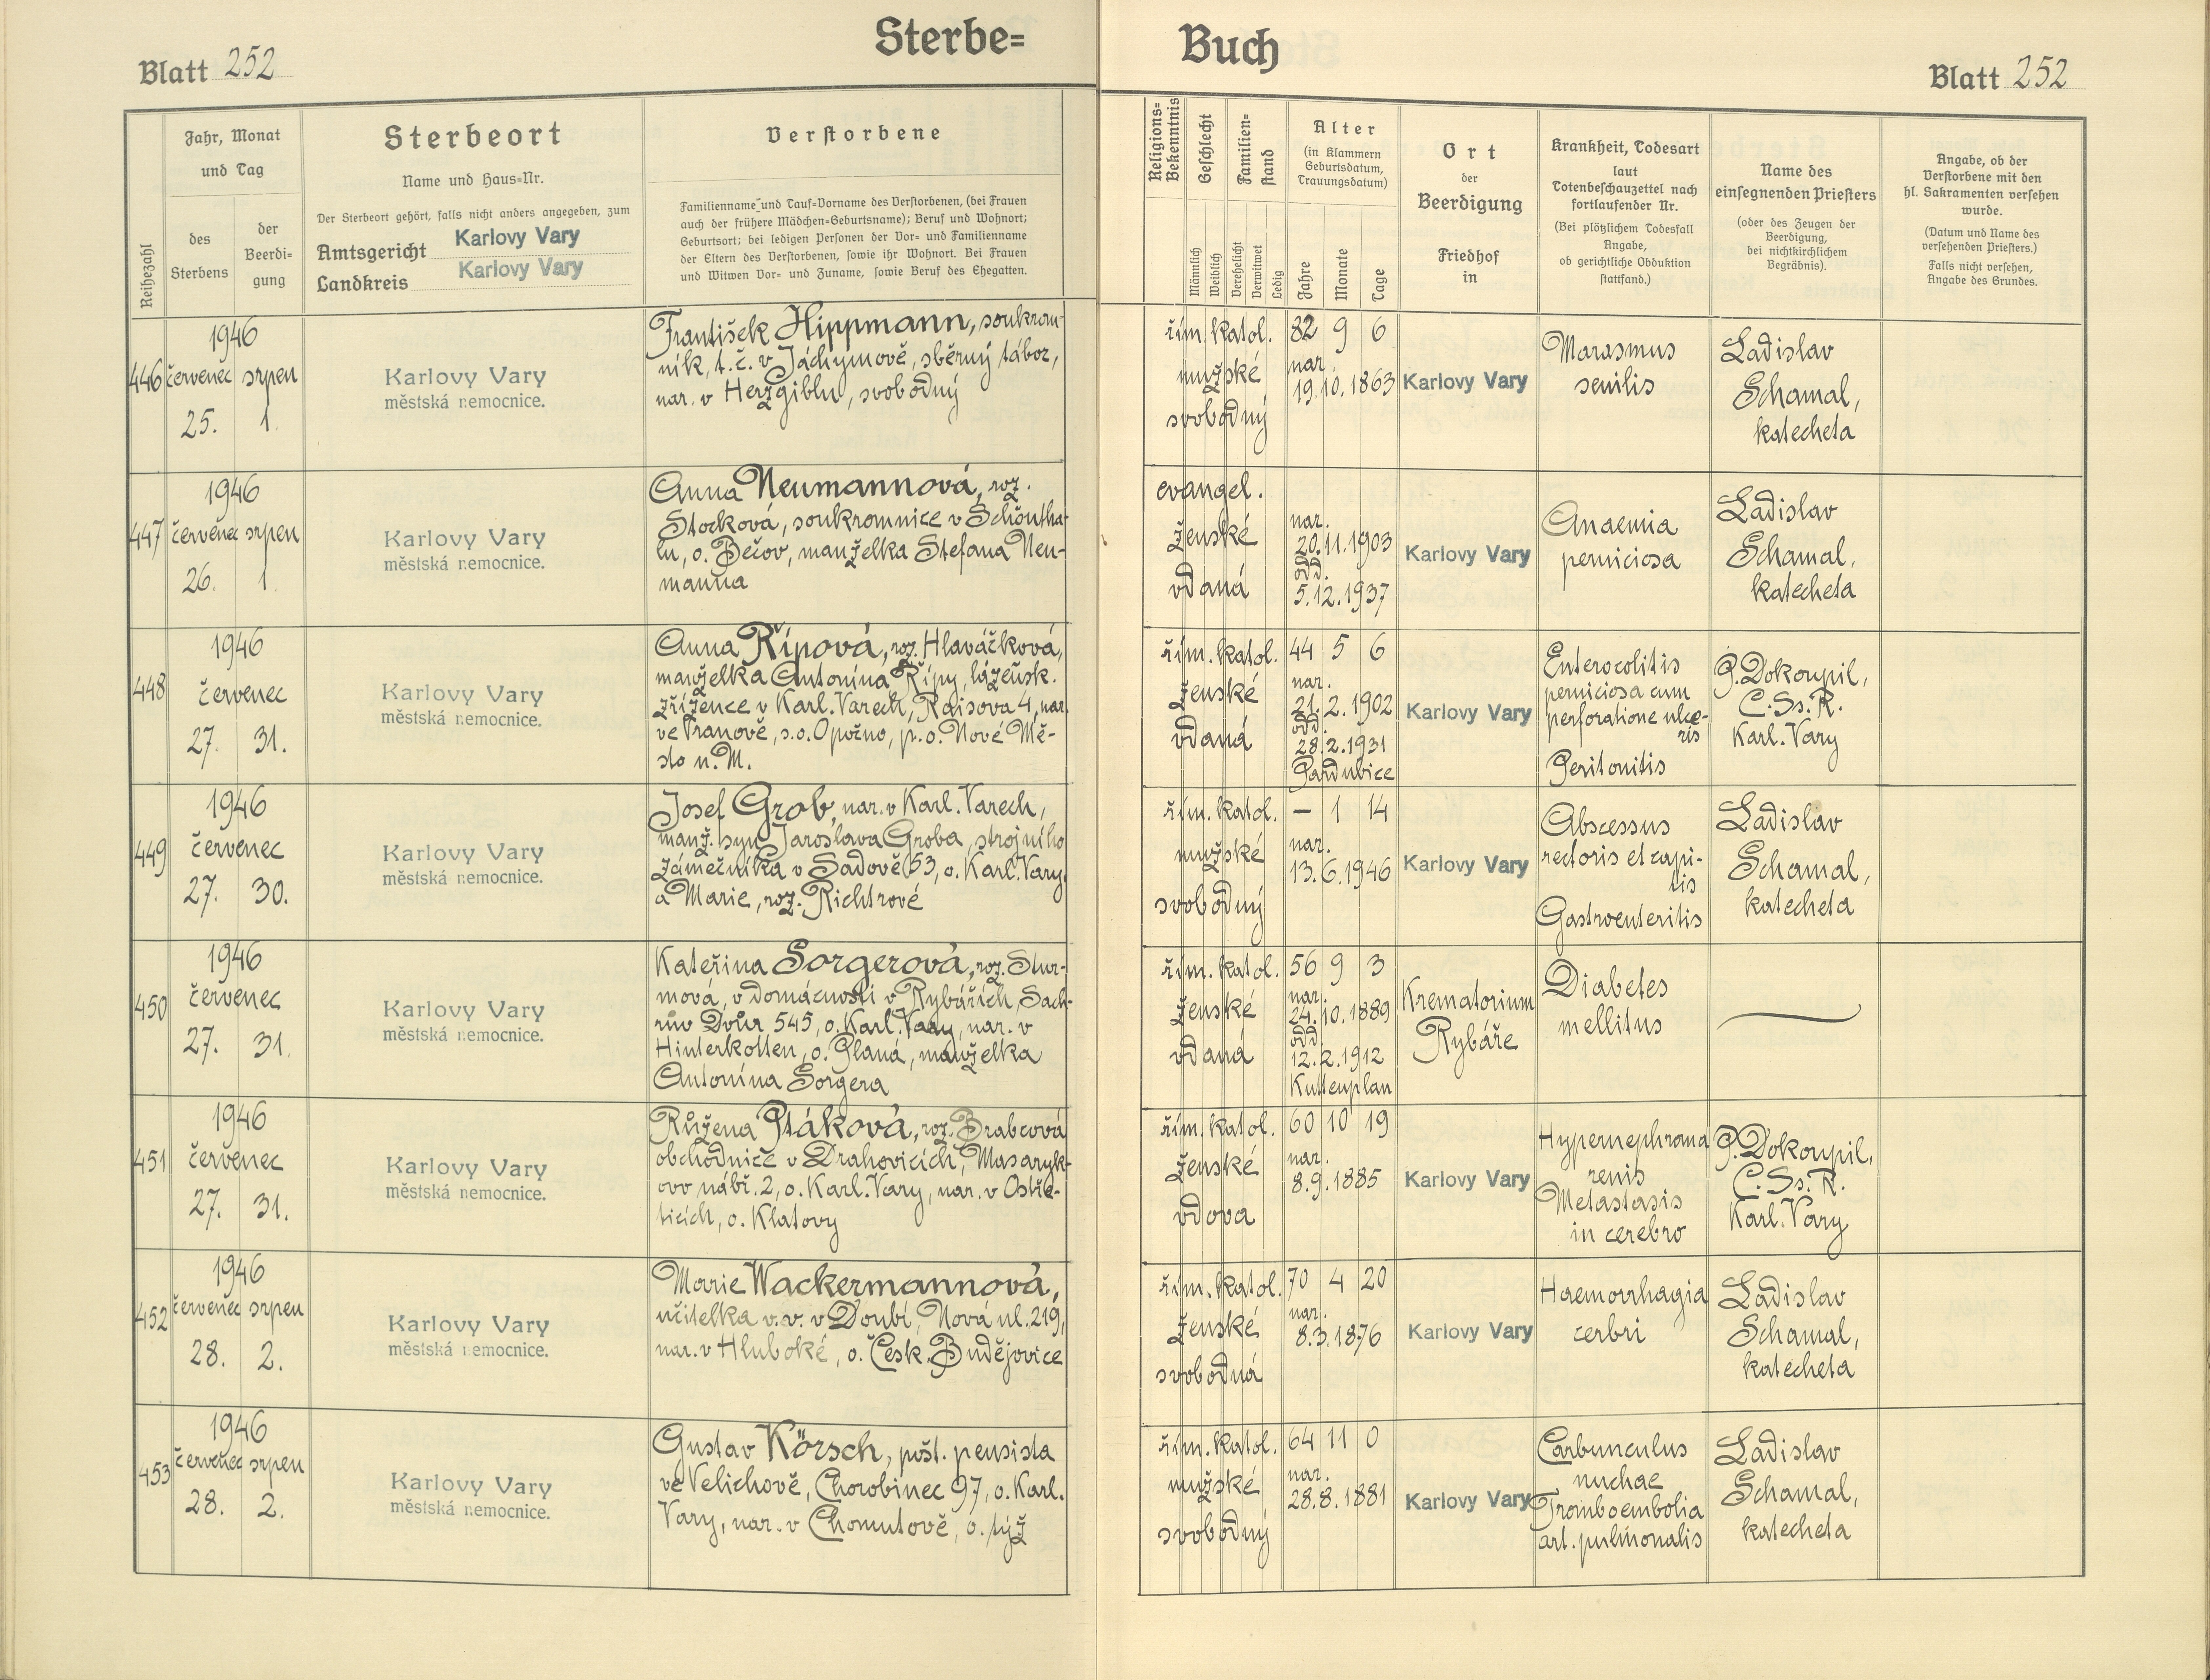 Blatt 252
Sterbe=
Reihezahl
Jahr, Monat
und Tag
des
Sterbens
der
Beerdi-
gung
Sterbeort
Name und Haus-Nr.
Der Sterbeort gehört, falls nicht anders angegeben, zum
Amtsgericht Karlovy Vary
Landkreis Karlovy Vary
Verstorbene
Familienname und Tauf-Vorname des Verstorbenen, (bei Frauen
auch der frühere Mädchen-Geburtsname); Beruf und Wohnort;
Geburtsort; bei ledigen Personen der Vor- und Familienname
der Eltern des Verstorbenen, sowie ihr Wohnort. Bei Frauen
und Witwen Vor- und Zuname, sowie Beruf des Ehegatten.
446
1946
červenec srpen
25. 1.
Karlovy Vary
městská nemocnice.
František Hippmann, soukrom-
ník, t.č. v Jáchymově, sběrný tábor,
nar. v Herzgiblu, svobodný
447
1946
červenec srpen
26. 1.
Karlovy Vary
městská nemocnice.
Anna Neumannová, roz.
Stocková, soukromnice v Schöntha-
lu, o. Bečov, manželka Štefana Neu-
manna
448
1946
červenec
27. 31.
Karlovy Vary
městská nemocnice.
Anna Řípová, roz. Hlaváčková,
manželka Antonína Řípy, lázeňsk.
zřízence v Karl. Varech, Raisova 4, nar.
ve Vranově, s.o. Opočno, p.o. Nové Mě-
sto n. M.
449
1946
červenec
27. 30.
Karlovy Vary
městská nemocnice.
Josef Grob, nar. v Karl. Varech,
manž. syn Jaroslava Groba, strojního
zámečníka v Sadově 53, o. Karl. Vary,
a Marie, roz. Richtrové
450
1946
červenec
27. 31.
Karlovy Vary
městská nemocnice.
Kateřina Sorgerová, roz. Stur-
mová, v domácnosti v Rybářích, Sach-
rův Dvůr 545, o. Karl. Vary, nar. v
Hinterkotten, o. Planá, manželka
Antonína Sorgera
451
1946
červenec
27. 31.
Karlovy Vary
městská nemocnice.
Růžena Ptáková, roz. Brabcová
obchodnice v Drahovicích, Masaryk-
ovo nábř. 2, o. Karl. Vary, nar. v Ostře-
ticích, o. Klatovy
452
1946
červenec srpen
28. 2.
Karlovy Vary
městská nemocnice.
Marie Wackermannová,
učitelka v.v. v Doubí, Nová ul. 219,
nar. v Hluboké, o. Česk. Budějovice
453
1946
červenec srpen
28. 2.
Karlovy Vary
městská nemocnice.
Gustav Körsch, pošt. pensista
ve Velichově, Chorobinec 97, o. Karl.
Vary, nar. v Chomutově, o. týž
Buch
Blatt 252
Religions-
Bekenntnis
Geschlecht
Familien-
stand
Männlich
Weiblich
Verehelicht
Verwitwet
Ledig
Alter
(in Klammern
Geburtsdatum,
Trauungsdatum)
Jahre
Monate
Tage
Ort
der
Beerdigung
Friedhof
in
Krankheit, Todesart
laut
Totenbeschauzettel nach
fortlaufender Nr.
(Bei plötzlichem Todesfall
Angabe,
ob gerichtliche Obduktion
stattfand.)
Name des
einsegnenden Priesters
(oder des Zeugen der
Beerdigung,
bei nichtkirchlichem
Begräbnis).
Angabe, ob der
Verstorbene mit den
hl. Sakramenten versehen
wurde.
(Datum und Name des
versehenden Priesters.)
Falls nicht versehen,
Angabe des Grundes.
řím. katol.
mužské
svobodný
82 9 6
nar.
19.10.1863
Karlovy Vary
Marasmus
senilis
Ladislav
Schamal,
katecheta
evangel.
ženské
vdaná
nar.
20.11.1903
odd.
5.12.1937
Karlovy Vary
Anaemia
perniciosa
Ladislav
Schamal,
katecheta
řím. katol.
ženské
vdaná
44 5 6
nar.
21.2.1902
odd.
28.2.1931
Pardubice
Karlovy Vary
Enterocolitis
perniciosa cum
perforatione ulce-
ris
Peritonitis
P. Dokoupil,
C.Ss.R.
Karl. Vary
řím. katol.
mužské
svobodný
– 1 14
nar.
13.6.1946
Karlovy Vary
Abscessus
rectoris et capi-
tis
Gastroenteritis
Ladislav
Schamal,
katecheta
řím. katol.
ženské
vdaná
56 9 3
nar.
24.10.1889
odd.
12.2.1912
Kuttenplan
Krematorium
Rybáře
Diabetes
mellitus
řím. katol.
ženské
vdova
60 10 19
nar.
8.9.1885
Karlovy Vary
Hypernephroma
renis
Metastasis
in cerebro
P. Dokoupil,
C.Ss.R.
Karl. Vary
řím. katol.
ženské
svobodná
70 4 20
nar.
8.3.1876
Karlovy Vary
Haemorrhagia
cerbri
Ladislav
Schamal,
katecheta
řím. katol.
mužské
svobodný
64 11 0
nar.
28.8.1881
Karlovy Vary
Carbunculus
nuchae
Tromboembolia
art. pulmonalis
Ladislav
Schamal,
katecheta